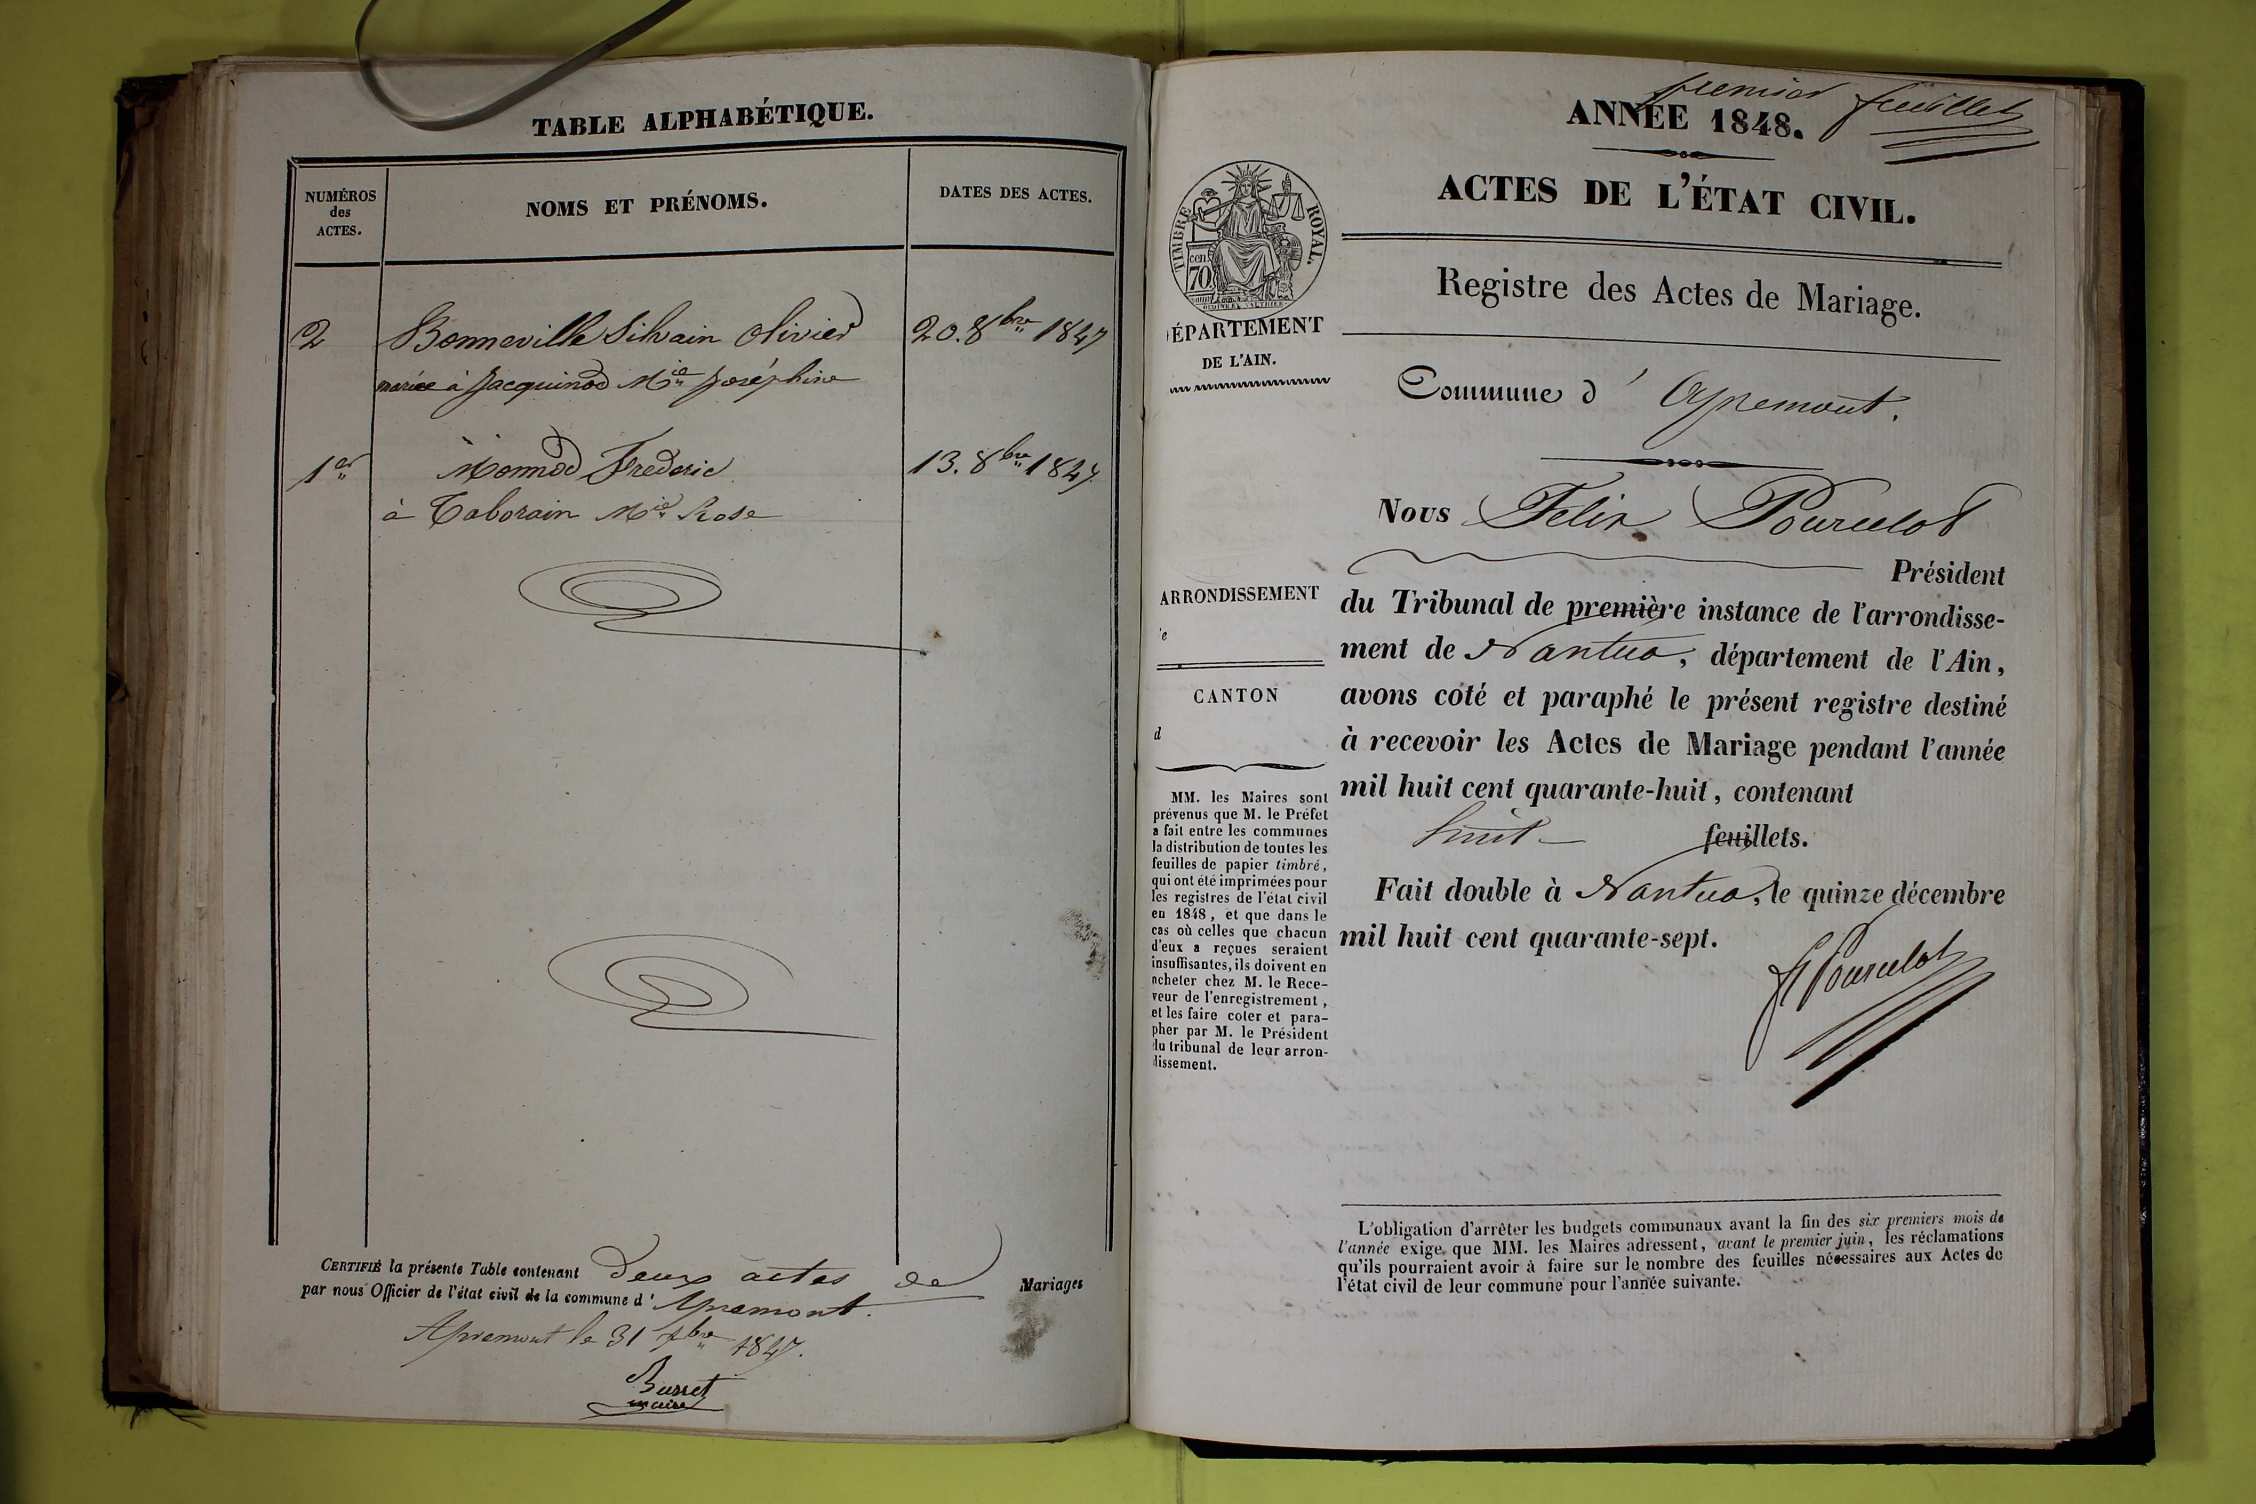 TABLE ALPHABÉTIQUE.
NUMÉROS
des
ACTES.
NOMS ET PRÉNOMS.
DATES DES ACTES.
2 Bonneville Silvain Olivier 20. 8bre 1847
mariée à Jacquinod Mie Joséphine
1er Monnod Frederic 13. 8bre 1847
à Taborain Mie Rose
CERTIFIÉ la présente Table contenant deux actes de Mariages
par nous Officier de l'état civil de la commune d' Apremont.
Apremont le 31 Xbre 1847.
Burret
maire
premier feuillet
ANNÉE 1848.
ACTES DE L'ÉTAT CIVIL.
Registre des Actes de Mariage.
TIMBRE ROYAL.
cen.
70
DÉPARTEMENT
DE L'AIN.
Commune d' Apremont.
Nous Felix Pourcelot
Président
du Tribunal de première instance de l'arrondisse-
ment de Nantua, département de l'Ain,
avons coté et paraphé le présent registre destiné
à recevoir les Actes de Mariage pendant l'année
mil huit cent quarante-huit, contenant
huit feuillets.
Fait double à Nantua, le quinze décembre
mil huit cent quarante-sept.
F Pourcelot
ARRONDISSEMENT
e
CANTON
d
MM. les Maires sont
prévenus que M. le Préfet
a fait entre les communes
la distribution de toutes les
feuilles de papier timbré,
qui ont été imprimées pour
les registres de l'état civil
en 1848, et que dans le
cas où celles que chacun
d'eux a reçues seraient
insuffisantes, ils doivent en
acheter chez M. le Rece-
veur de l'enregistrement,
et les faire coter et para-
pher par M. le Président
du tribunal de leur arron-
dissement.
L'obligation d'arrêter les budgets communaux avant la fin des six premiers mois de
l'année exige que MM. les Maires adressent, avant le premier juin, les réclamations
qu'ils pourraient avoir à faire sur le nombre des feuilles nécessaires aux Actes de
l'état civil de leur commune pour l'année suivante.